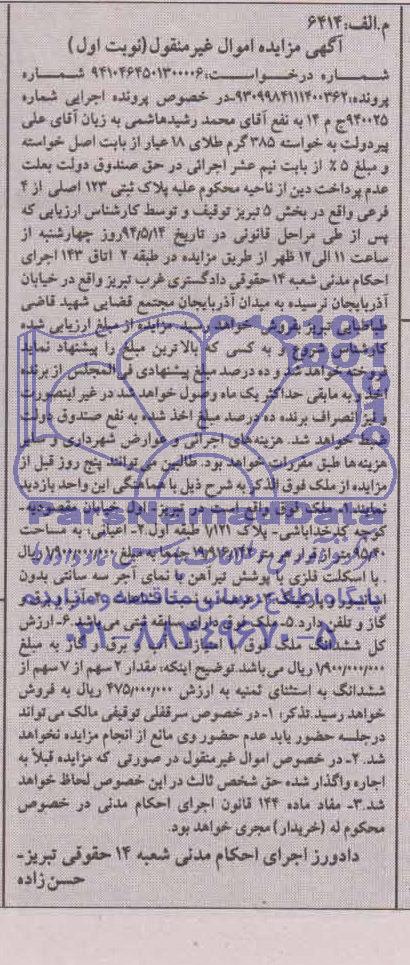 م.الف:۶۴۱۴
آگهی مزایده اموال غیرمنقول(نوبت اول)
شماره درخواست:۹۴۱۰۴۶۴۵۰۱۳۰۰۰۰۶ شماره
پرونده:۹۳۰۹۹۸۴۱۱۱۴۰۰۳۶۲-در خصوص پرونده اجرایی شماره
۹۴۰۰۲۵ج م ۱۴ به نفع آقای محمد رشیدهاشمی به زیان آقای علی
پیردولت به خواسته ۳۸۵ گرم طلای ۱۸ عیار از بابت اصل خواسته
و مبلغ ۵٪ از بابت نیم عشر اجرائی در حق صندوق دولت بعلت
عدم پرداخت دین از ناحیه محکوم علیه پلاک ثبتی ۱۲۳ اصلی از ۴
فرعی واقع در بخش ۵ تبریز توقیف و توسط کارشناس ارزیابی که
پس از طی مراحل قانونی در تاریخ ۹۴/۵/۱۴روز چهارشنبه از
ساعت ۱۱ الی۱۲ ظهر از طریق مزایده در طبقه ۲ اتاق ۱۴۳ اجرای
احکام مدنی شعبه ۱۴حقوقی دادگستری غرب تبریز واقع در خیابان
آذربایجان نرسیده به میدان آذربایجان مجتمع قضایی شهید قاضی
طباطبایی تبریز بفروش خواهد رسید مزایده از مبلغ ارزیابی شده
کارشناس شروع و به کسی که بالاترین مبلغ را پیشنهاد نماید
فروخته خواهد شد و ده درصد مبلغ پیشنهادی فی‌المجلس از برنده
اخذ و به مابقی حداکثر یک ماه وصول خواهد شد در غیر اینصورت
و نیز انصراف برنده ده درصد مبلغ اخذ شده به نفع صندوق دولت
ضبط خواهد شد. هزینه‌های اجرائی و عوارض شهرداری و سایر
هزینه‌ها طبق مقررات خواهد بود. طالبین می‌توانند پنج روز قبل از
مزایده از ملک فوق الذکر به شرح ذیل با هماهنگی این واحد بازدید
نمایند:۱- ملک فوق واقع است در تبریز- اول خیابان مقصودیه-
کوچه کلیخداباشی- پلاک ۷/۱۲۱ طبقه اول۲- اعیانی، به مساحت
۹۵/۴۰ متر از قرار هر متر جمعا به مبلغ ۱/۹۰۰/۰۰۰/۰۰۰ ریال
. با اسکلت فلزی با پوشش تیرآهن با نمای آجر سه سانتی بدون
آسانسور و پارکینگ
گاز و تلفن دارد ۵- ملک فوق دارای سابقه ثبتی می‌باشد ۶- ارزش
کل ششدانگ ملک فوق با امتیازات آب و برق و گاز به مبلغ
۱/۹۰۰/۰۰۰/۰۰۰ ریال می‌باشد. توضیح اینکه: مقدار ۲ سهم از ۷ سهم از
ششدانگ به استثنای ثمنیه به ارزش ۴۷۵/۰۰۰/۰۰۰ ریال به فروش
خواهد رسید.تذکر: ۱- در خصوص سرقفلی توقیفی مالک می‌تواند
درجلسه حضور یابد عدم حضور وی مانع از انجام مزایده نخواهد
شد. ۲- در خصوص اموال غیرمنقول در صورتی که مزایده قبلاً به
اجاره واگذار شده حق شخص ثالث در این خصوص لحاظ خواهد
شد.۳- مفاد ماده ۱۴۴ قانون اجرای احکام مدنی در خصوص
محکوم له (خریدار) مجری خواهد بود.
دادورز اجرای احکام مدنی شعبه ۱۴ حقوقی تبریز-
حسن‌زاده
ParsNamadData
پایگاه اطلاع رسانی مناقصه و مزایده
۰۲۱-۸۸۳۴۹۶۷۰-۵